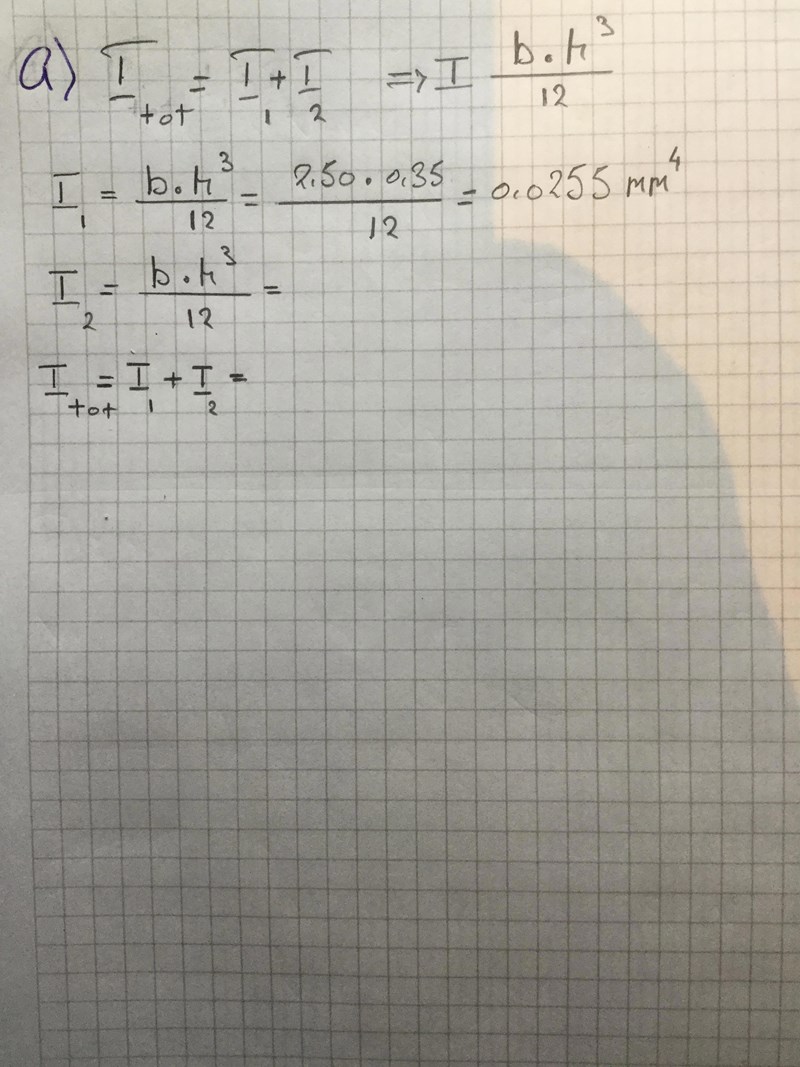 a) I_tot = I_1 + I_2 ⇒ I b·h³/12
I_1 = b·h³/12 = 2.50·0.35/12 = 0.0255 mm⁴
I_2 = b·h³/12 =
I_tot = I_1 + I_2 =